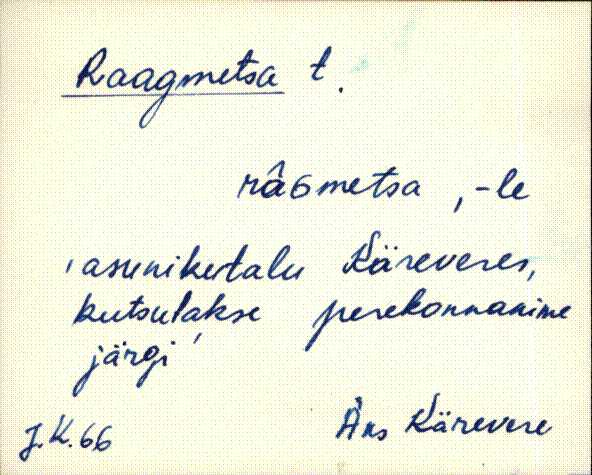 Raagmetsa t.
râGmetsa, -le
'asunikutalu Käreveres,
kutsutakse perekonnanime
järgi'
J.K.66
Äks Kärevere